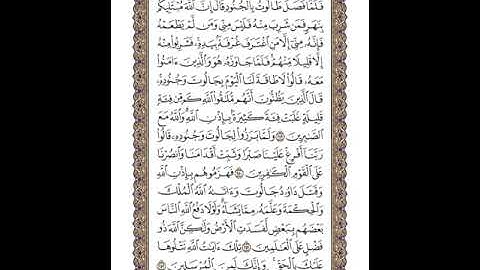 فَلَمَّا فَصَلَ طَالُوتُ بِالْجُنُودِ قَالَ إِنَّ اللَّهَ مُبْتَلِيكُم
بِنَهَرٍ فَمَن شَرِبَ مِنْهُ فَلَيْسَ مِنِّي وَمَن لَّمْ يَطْعَمْهُ
فَإِنَّهُ مِنِّي إِلَّا مَنِ اغْتَرَفَ غُرْفَةً بِيَدِهِ فَشَرِبُوا مِنْهُ
إِلَّا قَلِيلًا مِّنْهُمْ فَلَمَّا جَاوَزَهُ هُوَ وَالَّذِينَ ءَامَنُوا
مَعَهُ قَالُوا لَا طَاقَةَ لَنَا الْيَوْمَ بِجَالُوتَ وَجُنُودِهِ
قَالَ الَّذِينَ يَظُنُّونَ أَنَّهُم مُّلَاقُوا اللَّهِ كَم مِّن فِئَةٍ
قَلِيلَةٍ غَلَبَتْ فِئَةً كَثِيرَةً بِإِذْنِ اللَّهِ وَاللَّهُ مَعَ
الصَّابِرِينَ ۝٢٤٩ وَلَمَّا بَرَزُوا لِجَالُوتَ وَجُنُودِهِ قَالُوا
رَبَّنَا أَفْرِغْ عَلَيْنَا صَبْرًا وَثَبِّتْ أَقْدَامَنَا وَانصُرْنَا
عَلَى الْقَوْمِ الْكَافِرِينَ ۝٢٥٠ فَهَزَمُوهُم بِإِذْنِ اللَّهِ
وَقَتَلَ دَاوُدُ جَالُوتَ وَءَاتَاهُ اللَّهُ الْمُلْكَ
وَالْحِكْمَةَ وَعَلَّمَهُ مِمَّا يَشَاءُ وَلَوْلَا دَفْعُ اللَّهِ النَّاسَ
بَعْضَهُم بِبَعْضٍ لَّفَسَدَتِ الْأَرْضُ وَلَٰكِنَّ اللَّهَ ذُو
فَضْلٍ عَلَى الْعَالَمِينَ ۝٢٥١ تِلْكَ ءَايَاتُ اللَّهِ نَتْلُوهَا
عَلَيْكَ بِالْحَقِّ وَإِنَّكَ لَمِنَ الْمُرْسَلِينَ ۝٢٥٢